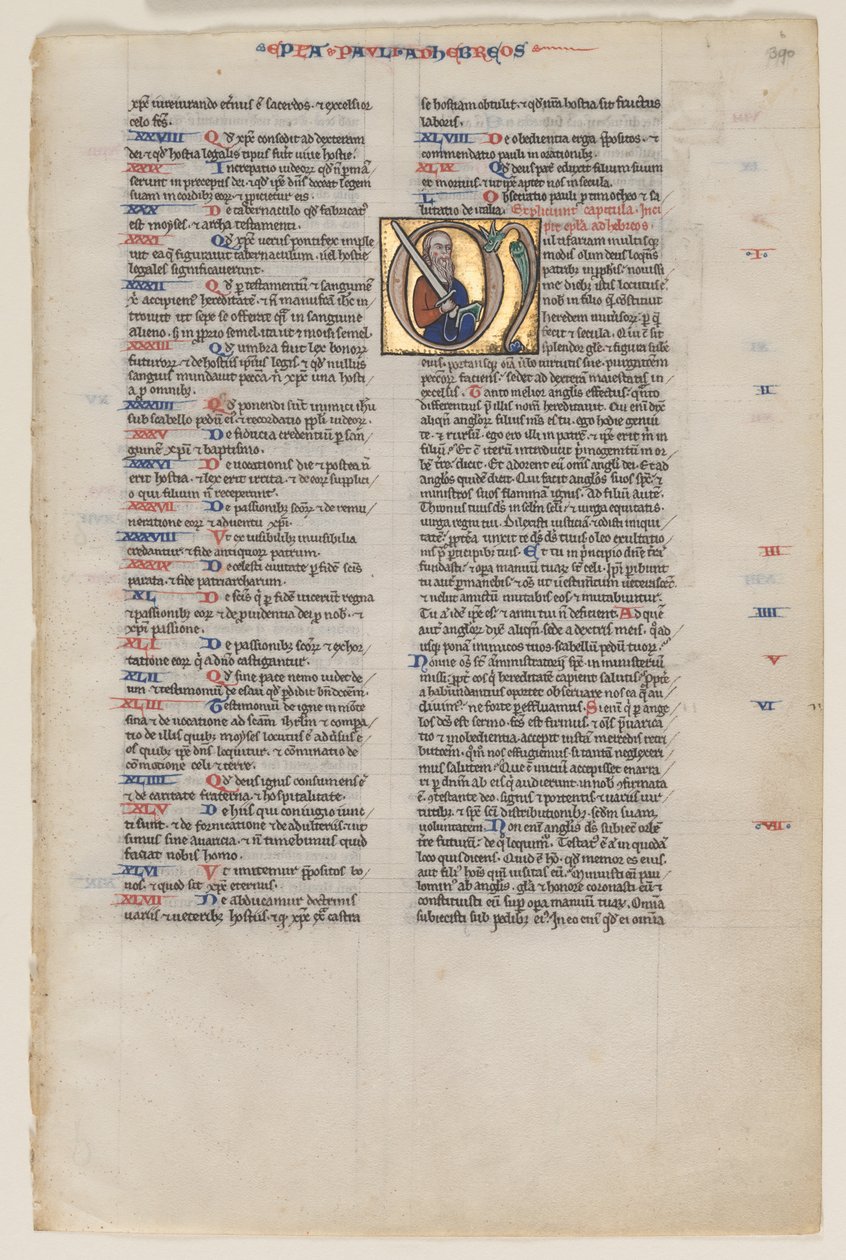 EPLA PAVLI AD hEBREOS
390
xpc iureiurando etnus e sacerdos. 7 excelsior
celo fcs.
XXVIII Qd xpc consedit ad dexteram
dei 7 qd hostia legalis tipus fuit uiue hostie.
XXIX Increpatio iudeor qd n pma
serunt in preceptis dei. 7 qd ipe dns doceat legem
suam in cordib eor 7 ppicietur eis.
XXX De tabernaculo qd fabricat
est moyses. 7 archa testamenti.
XXXI Qd xpc uerus pontifex imple
uit ea q figurauit tabernaculum. uel hostie
legales significauerunt.
XXXII Qd p testamentu 7 sangune
xc accipiem hereditate. 7 n manufca ihc in
troiuit ut sepe se offerat in sanguine
alieno. s in pprio semel ita ut 7 moisi semel.
XXXIII Qd umbra fuit lex bonor
futuror 7 de hostiis ipsius legis. 7 qd nullus
sanguis mundauit pecca n xpc una hosti
a p omnib.
XXXIIII Qd ponendi sunt inimici ihu
sub scabello pedu ei. 7 recordatio ppli iudeor.
XXXV De fiducia credentiu p san
guine xpi 7 baptismo.
XXXVI De uocationis die 7 postea n
erit hostia. 7 lex erit irrita. 7 de eor supplici
o qui filium n receperant.
XXXVII De passionib scor 7 de remu
neratione eor 7 aduentu xpi.
XXXVIII Vt ex uisibilib inuisibilia
credantur 7 fide antiquor patrum.
XXXIX De celesti ciuitate p fide scis
parata. 7 fide patriarcharum.
XL De scis q p fide uicerunt regna
7 passionib eor 7 de puidentia dei p nob. 7
xpi passione.
XLI De passionib scor 7 exhor
tatione eor q a dno castigantur.
XLII Qd sine pace nemo uidet de
um. 7 testimoniu de esau qd pdidit bndictoem.
XLIII Testimoniu de igne in mote
sina 7 de uocatione ad scam ihrlm 7 compa
tio de illis quib moyses locutus e aduersus e
os quib ipe dns loquitur. 7 cominatio de
comotione celi 7 terre.
XLIIII Qd deus ignis consumens e
7 de caritate fraterna. 7 hospitalitate.
XLV De hiis qui coniugio iunc
ti sunt. 7 de fornicatione 7 de adulteriis. ut
simus sine auaricia. 7 n timebimus quid
faciat nobis homo.
XLVI Vt imitemur ppositos bo
nos. 7 quod sit xpc eternus.
XLVII Ne abducamur doctrinis
uariis 7 ueterib hostiis. 7 q xpc ex castra
se hostiam obtulit. 7 qd una hostia sit fructus
laboris.
XLVIII De obedientia erga ppositos. 7
commendatio pauli in orationib.
XLIX Qd deus pat eduxit filium suum
ex mortuis. 7 ut ipe aptet nos in secula.
L Obsecratio pauli p timotheo 7 sa
lutatio de italia. Expliciunt capitula. Inci
pit epla ad hebreos.
I
ultifariam multisq
modis olim deus loqns
patrib in pphis. nouissi
me dieb istis locutus e
nob in filio que constituit
heredem uniuersor. p que
fecit 7 secula. Qui cu sit
splendor gle. 7 figura substancie
eius. portansq oia ubo uirtutis sue. purgatoem
peccor faciens. sedet ad dextera maiestatis in
II
excelsis. Tanto melior anglis effectus. qnto
differentius p illis nom hereditauit. Cui eni dix
aliqn anglor filius ms es tu. ego hodie genui
te. 7 rursu. ego ero illi in patre. 7 ipe erit m in
filiu. Et cu iteru introducit primogenitu in or
be tre. dicit. Et adorent eu oms angli dei. Et ad
anglos quide dicit. Qui facit anglos suos sps. 7
ministros suos flamma ignis. Ad filiu aute.
Thronus tuus ds in sclm scli. uirga equitatis.
uirga regni tui. Dilexisti iusticia. 7 odisti iniqui
tate. pptea unxit te ds ds tuus oleo exultatio
III
nis p participib tuis. Et tu in principio dne tra
fundasti. 7 opa manuu tuar st celi. Ipi pibunt
tu aut pmanebis. 7 os ut uestimtum ueterascet.
7 uelut amictu mutabis eos 7 mutabuntur.
IIII
Tu a ide ipe es. 7 anni tui n deficient. Ad que
aut anglor dix aliqn. sede a dextris meis. qad
usq pona inimicos tuos scabellu pedu tuor.
V
Nonne os st aministratorii sps. in ministeriu
missi. ppt eos q hereditate capient salutis. Ppt
ea habundantius oportet obseruare nos ea q au
VI
diuim. ne forte peffluamus. Si eni q p ange
los dcs est sermo. fcs est firmus. 7 ois puarica
tio 7 inobedientia. accepit iusta mercedis retri
butoem. qm nos effugiemus si tanta neglexeri
mus salutem. Que cu iniciu accepisset enarra
ri p dnm ab eis q audierunt in nob 9firmata
e. 9testante deo. signis 7 portentis. 7 uariis uir
tutib. 7 sps sci distributionib. scdm suam
VII
uoluntatem. Non eni anglis ds subiec orbe
tre futuru. de q loquim. Testat e a in quoda
loco quis dicens. Quid e ho. qd memor es eius.
aut fili hois qm uisitas eu. Minuisti eu pau
lominus ab anglis. gla 7 honore coronasti eu. 7
constituisti eu sup opa manuu tuar. Omia
subiecisti sub pedib ei. In eo eni qd ei omia